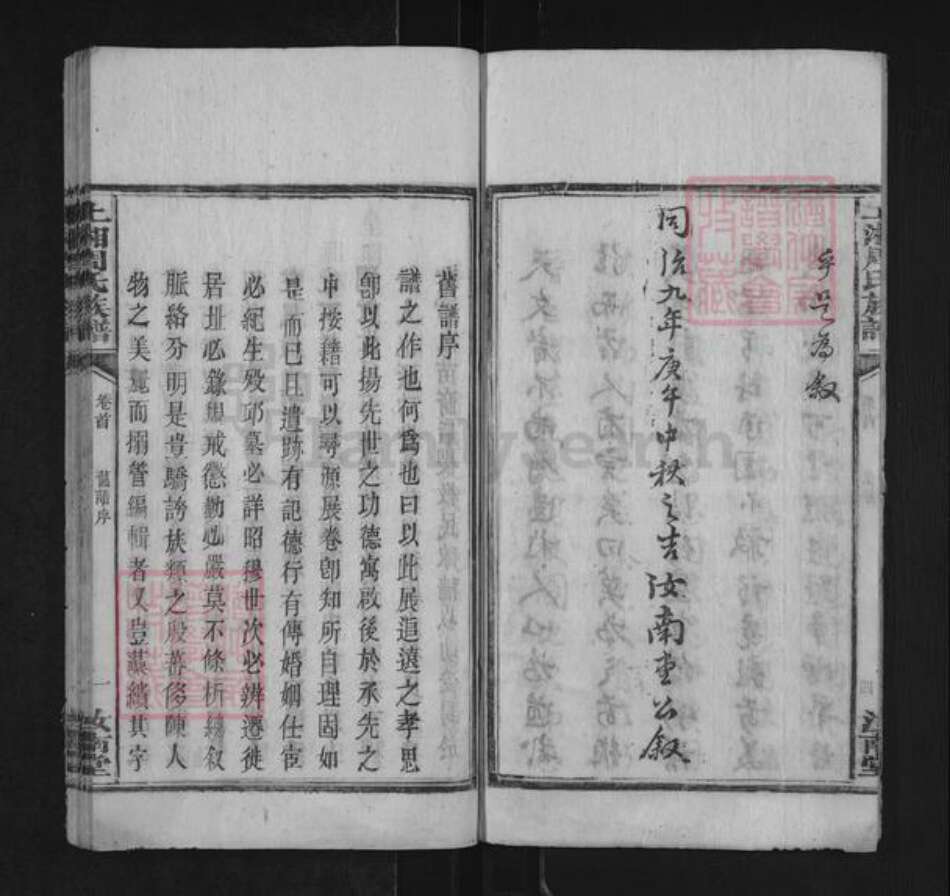 上湘周氏族譜
乎是為叙
同治九年庚午中秋之吉汝南堂公叙
四
汝南堂
舊譜序
譜之作也何爲也曰以此展追遠之孝思
卽以此揚先世之功德寓啟後於承先之
中按籍可以尋源展卷卽知所自理固如
是而已且遺跡有記德行有傳婚姻仕宦
必紀生殁邱墓必詳昭穆世次必辨遷徙
居址必錄與戒懲勸必嚴莫不條析縷叙
脈絡分明是豈驕誇族類之殷蕃侈陳人
物之美麗而搦管編輯者又豈藻繢其字
上湘周氏族譜
卷首
舊譜序
一
汝南堂
FamilySearch